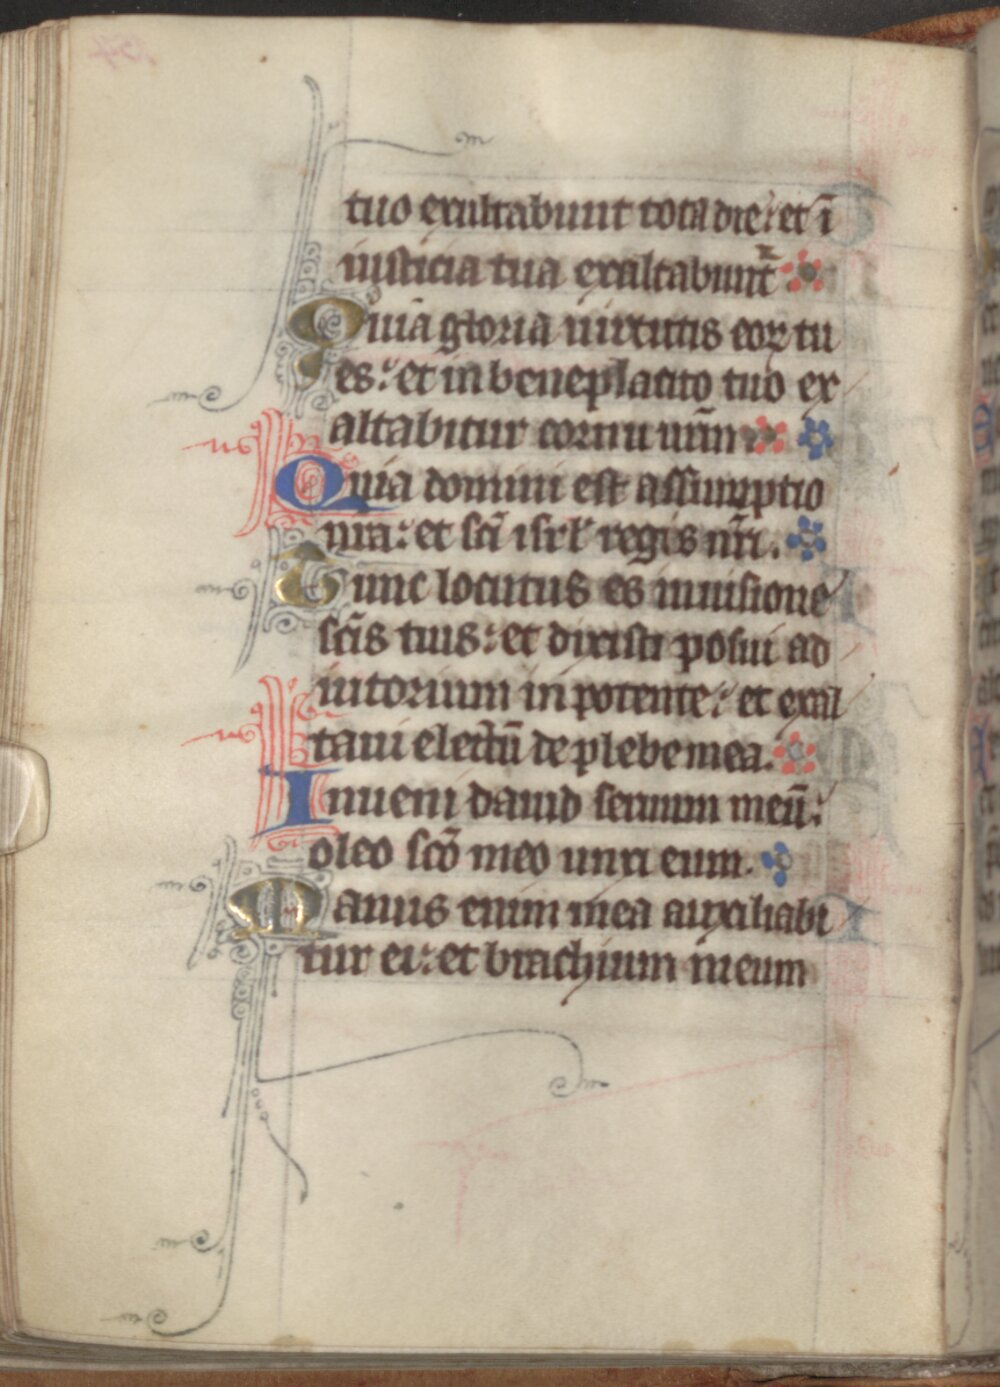 tuo exultabunt tota die: et ī
iusticia tua exaltabunt᷑
Quia gloria uirtutis eoꝝ tu
es: et in beneplacito tuo ex
altabitur cornu nr̄m
Quia domini est assumptio
nr̄a: et sc̄i isrl̄ regis nr̄i.
Tunc locutus es in uisione
sc̄is tuis: et dixisti posui ad
iutorium in potente: et exal
taui electū de plebe mea.
Inueni dauid seruum meū:
oleo sc̄o meo unxi eum.
Manus enim mea auxiliabi
tur ei: et brachium meum